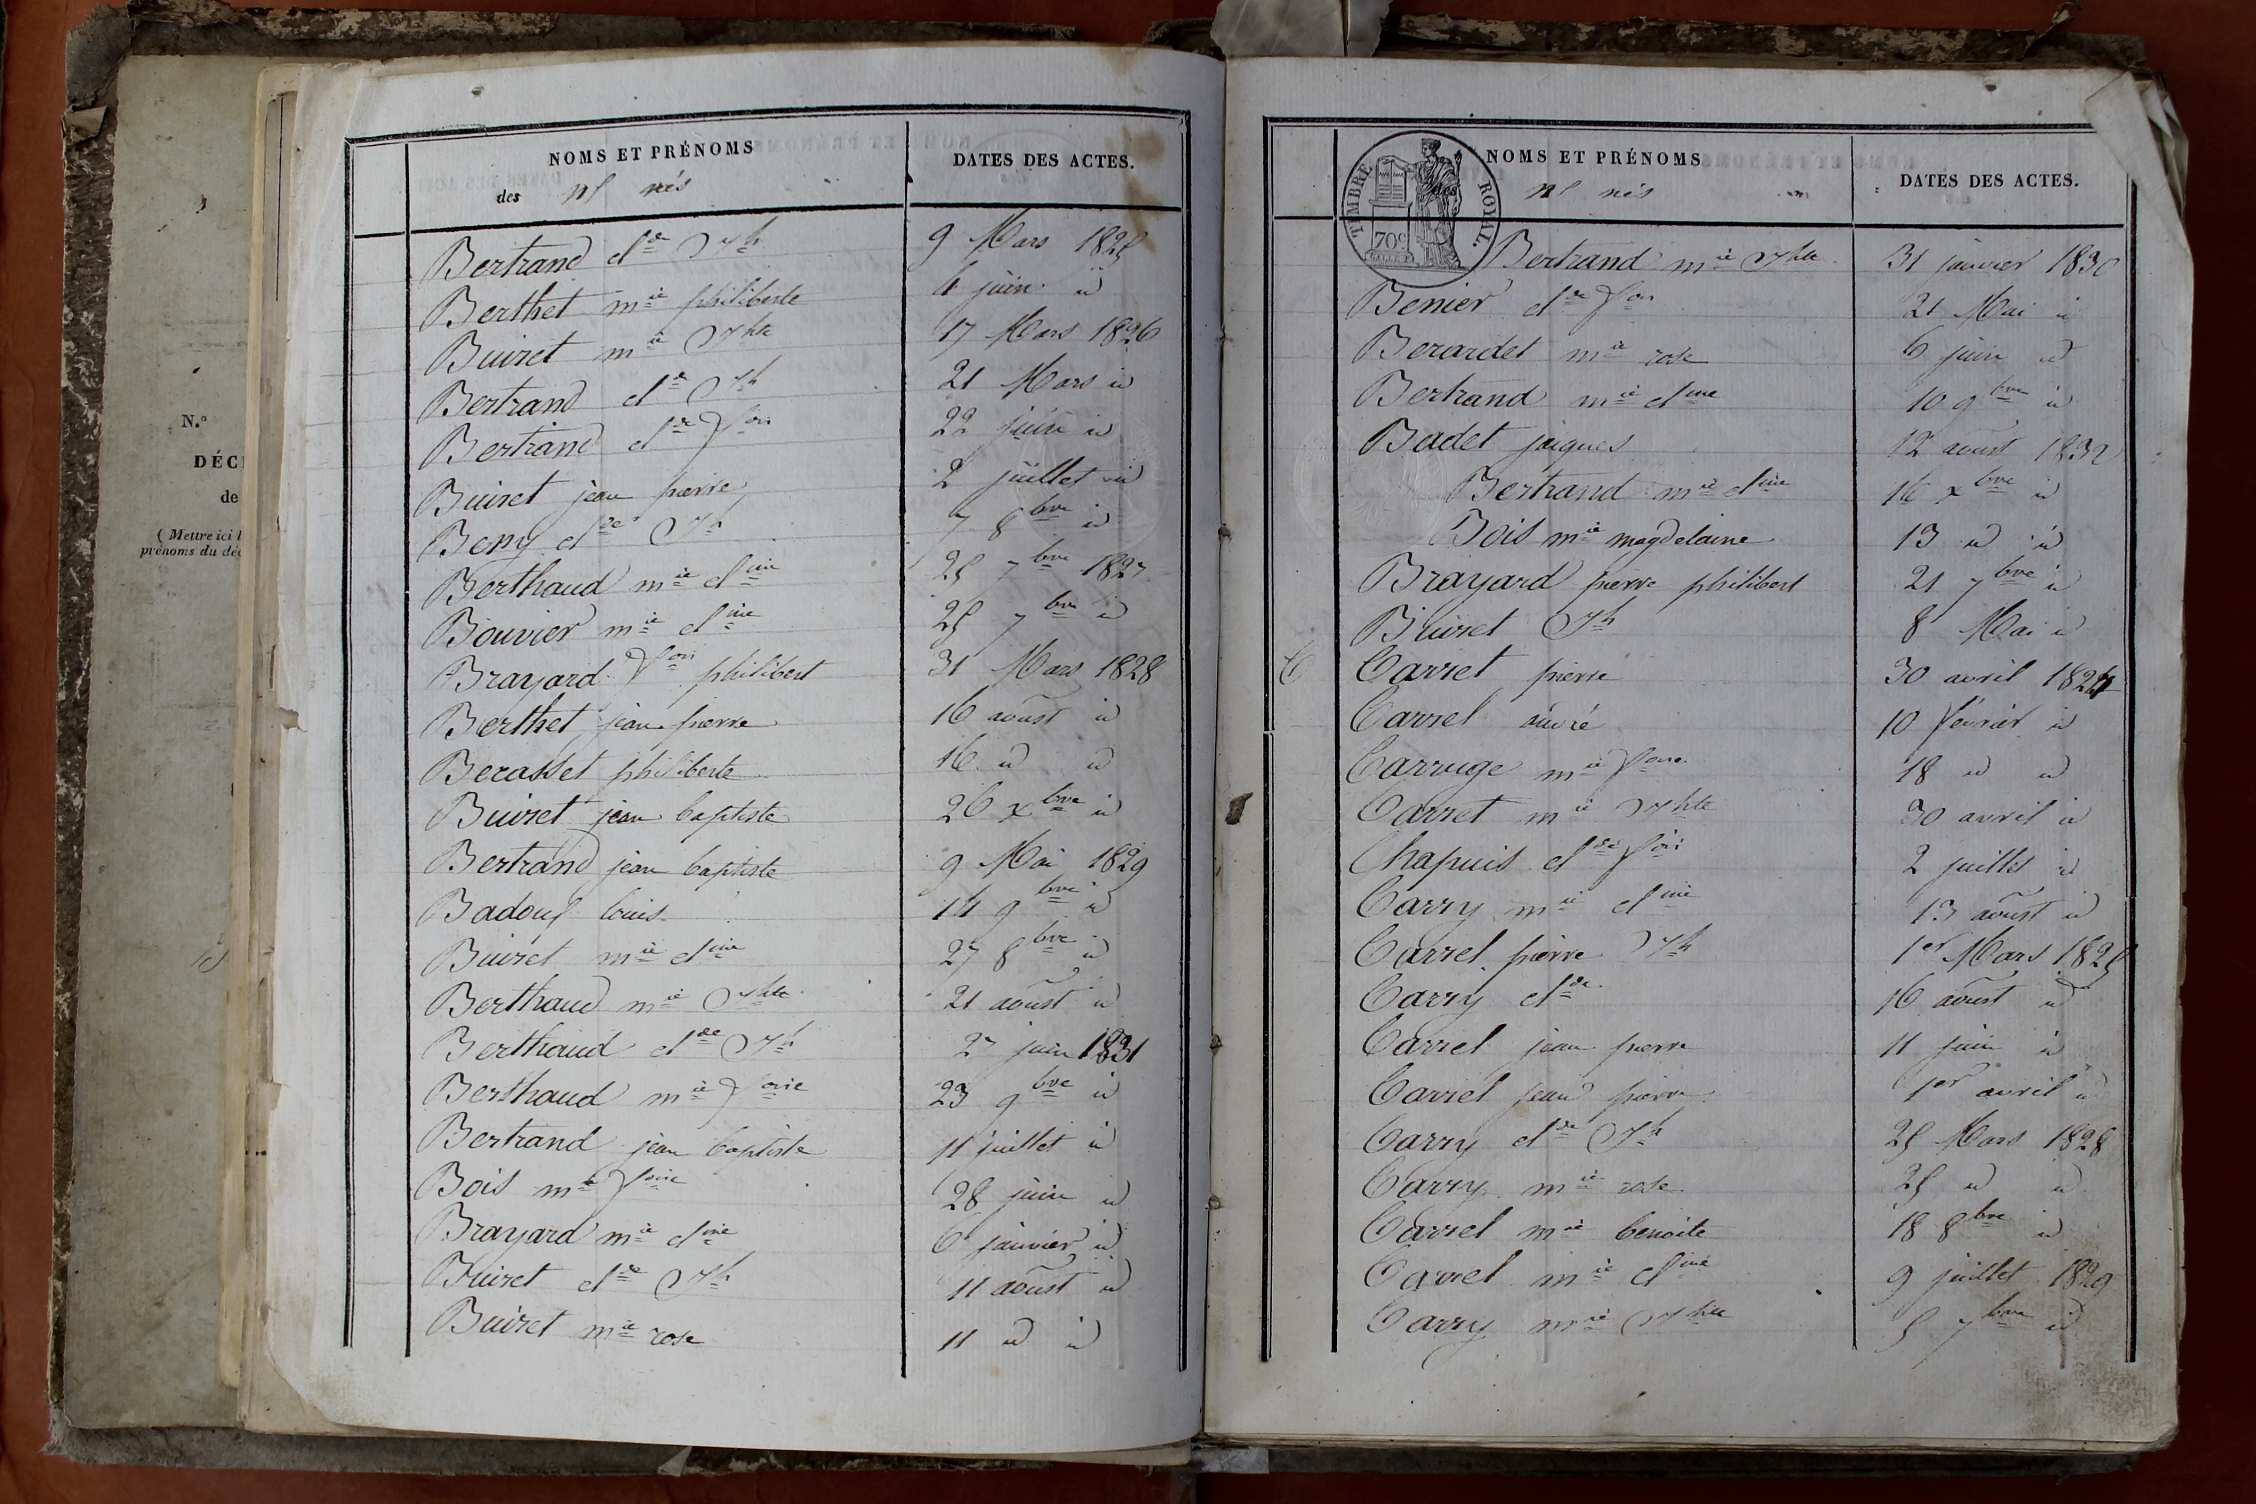 N.º
DÉC
de
( Mettre ici l
prénoms du déc
NOMS ET PRÉNOMS
DATES DES ACTES.
des nf nés
Bertrand clde Jph 9 Mars 1825
Berthet mie philiberte 6 juin id
Buiret mie Jphte 17 Mars 1826
Bertrand clde Jph 21 Mars id
Bertrand clde fois 22 juin id
Buiret jean pierre 2 juillet id
Beny clde Jph 7 8bre id
Berthaud mie cline 25 7bre 1827
Bouvier mie cline 25 7bre id
Brayard fois philibert 31 Mars 1828
Berthet jean pierre 16 aoust id
Berasset philiberte 16 id id
Buiret jean baptiste 26 xbre id
Bertrand jean baptiste 9 Mai 1829
Badouf louis 14 9bre id
Buiret mie cline 27 8bre id
Berthaud mie Jphte 21 aoust id
Berthaud clde Jph 27 juin 1831
Berthaud mie foise 23 9bre id
Bertrand jean baptiste 11 juillet id
Bois mie foise 28 juin id
Brayard mie cline 6 janvier id
Buiret clde Jph 11 aoust id
Buiret mie rose 11 id id
TIMBRE ROYAL.
70c
NOMS ET PRÉNOMS
DATES DES ACTES.
des nf nés
Bertrand mie Jphte 31 janvier 1830
Benier clde fois 21 Mai id
Berardet mie rose 6 juin id
Bertrand mie cline 10 9bre id
Badet jaiques 12 aoust 1832
Bertrand mie cline 16 xbre id
Bois mie magdelaine 13 id id
Brayard pierre philibert 21 7bre id
Buiret Jph 8 Mai id
C Carret pierre 30 avril 1824
Carrel 10 février id
Carruge mie foise 18 id id
Carret mie Jphte 30 avril id
Chapuis clde fois 2 juillet id
Carry mie cline 13 aoust id
Carrel pierre Jph 1er Mars 1825
Carry clde 16 aoust id
Carrel jean pierre 11 juin id
Carrel jean pierre 1er avril id
Carry clde Jph 25 Mars 1828
Carry mie rose 25 id id
Carrel mie benoite 18 8bre id
Carrel mie cline 9 juillet 1829
Carry mie Jphte 5 7bre id